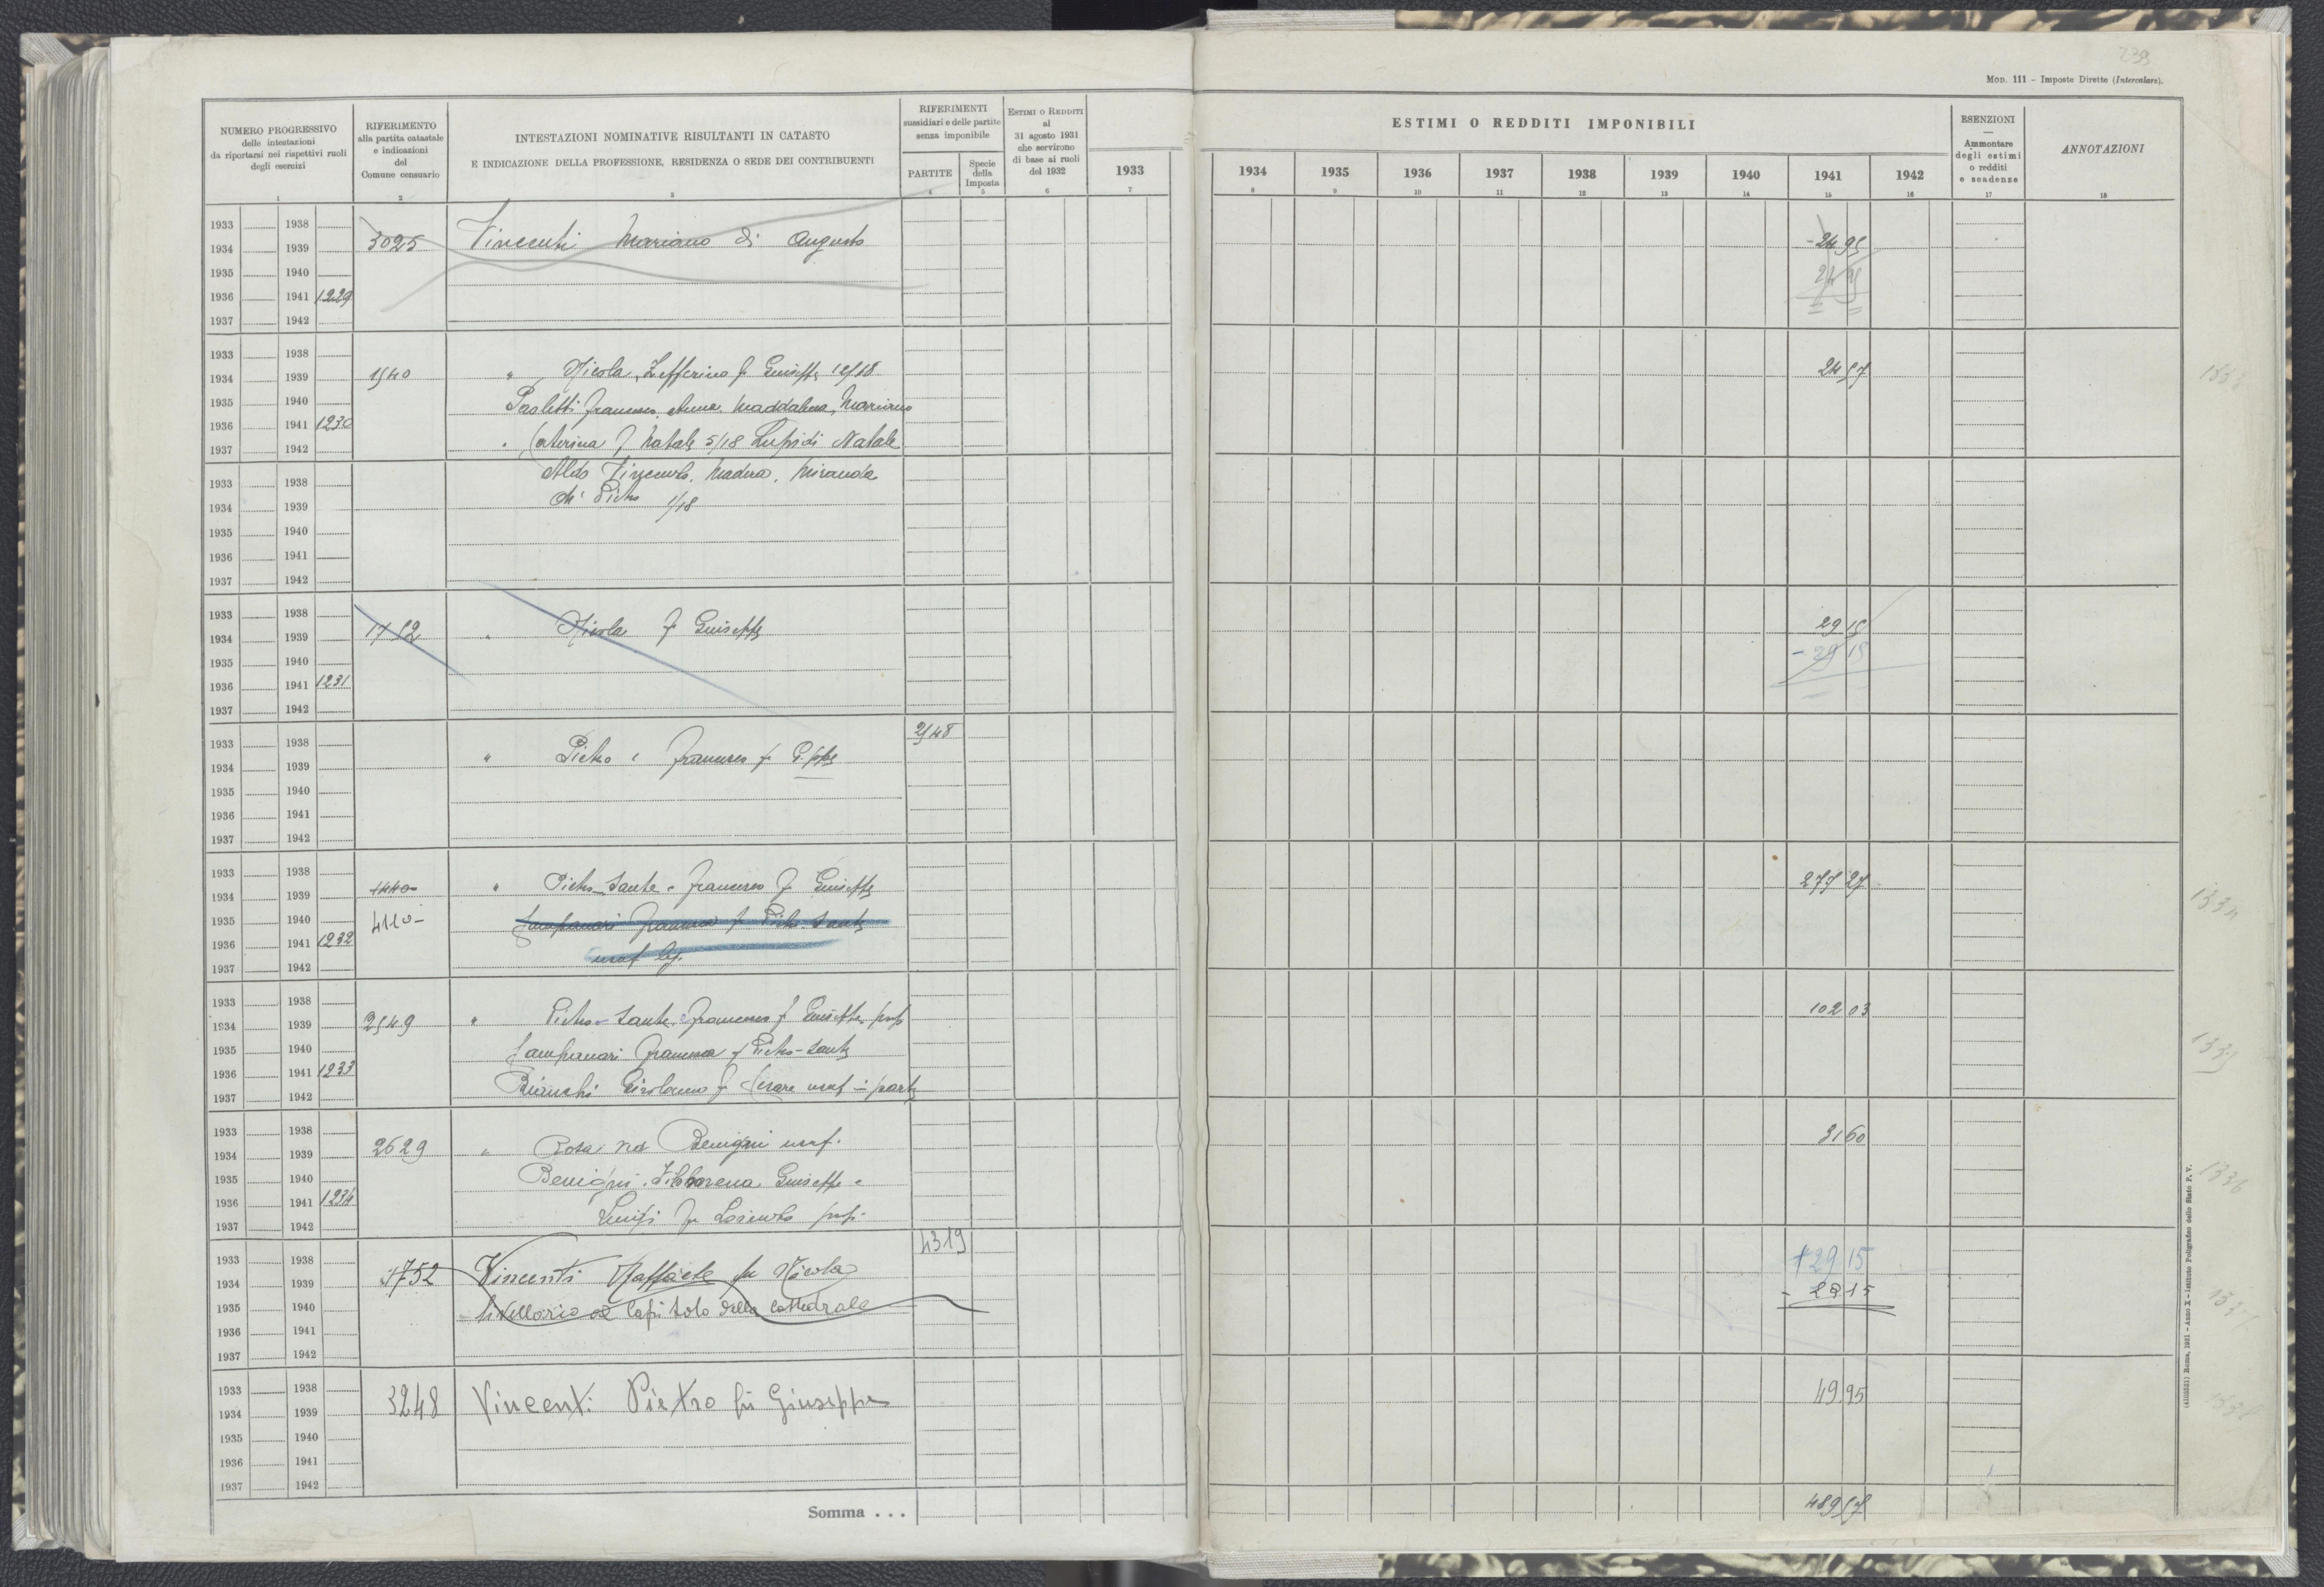 239
Mod. 111 - Imposte Dirette (Intercalare).
NUMERO PROGRESSIVO
delle intestazioni
da riportarsi nei rispettivi ruoli
degli esercizi
1
RIFERIMENTO
alla partita catastale
e indicazioni
del
Comune censuario
2
INTESTAZIONI NOMINATIVE RISULTANTI IN CATASTO
E INDICAZIONE DELLA PROFESSIONE, RESIDENZA O SEDE DEI CONTRIBUENTI
3
RIFERIMENTI
sussidiari e delle partite
senza imponibile
PARTITE
4
Specie
della
Imposta
5
ESTIMI O REDDITI
al
31 agosto 1931
che servirono
di base ai ruoli
del 1932
6
ESTIMI O REDDITI IMPONIBILI
1933 1934 1935 1936 1937 1938 1939 1940 1941 1942
7 8 9 10 11 12 13 14 15 16
ESENZIONI
—
Ammontare
degli estimi
o redditi
e scadenze
17
ANNOTAZIONI
18
1933 1938
1934 1939 3025 Vincenti Mariano di Augusto - 24 95
1935 1940 24 95
1936 1941 1229
1937 1942
1933 1938
1934 1939 1540 " Nicola, Zefferino fu Giuseppe 12/18 24 57
1935 1940 Paoletti Francesco, Anna, Maddalena, Mariano
1936 1941 1230
1937 1942 Caterina fu Natale 5/18 Lupidi Natale
1933 1938 Aldo Vincenzo, Madera, Miranda
1934 1939 di Pietro 1/18
1935 1940
1936 1941
1937 1942
1933 1938
1934 1939 1752 " Nicola fu Giuseppe 29 15
1935 1940 - 29 15
1936 1941 1231
1937 1942
1933 1938 2548
1934 1939 " Pietro e Francesco fu G.ppe
1935 1940
1936 1941
1937 1942
1933 1938
1934 1939 1440 " Pietro-Sante e Francesco fu Giuseppe 277 27
1935 1940 4110 - Zampanari Francesca fu Pietro-Sante
1936 1941 1232
1937 1942 usuf leg.
1933 1938
1934 1939 2549 " Pietro-Sante e Francesco fu Giuseppe prop 102 03
1935 1940 Zampanari Francesca fu Pietro-Sante
1936 1941 1233
1937 1942 Bianchi Girolamo fu Cesare usuf in parte
1933 1938
1934 1939 2629 " Rosa ved Benigni usuf. 31 60
1935 1940 Benigni Filomena Giuseppe e
1936 1941 1234
1937 1942 Luigi fu Lorenzo prop.
4319
1933 1938 1752 Vincenti Raffaele fu Nicola + 29 15
1934 1939 - 29 15
1935 1940 livellario al Capitolo della Cattedrale
1936 1941
1937 1942
1933 1938
1934 1939 3248 Vincenti Pietro fu Giuseppe 49.95
1935 1940
1936 1941
1937 1942
Somma . . . 489 57
1334
1335
1336
1337
1338
(4103331) Roma, 1931 - Anno X - Istituto Poligrafico dello Stato P. V.